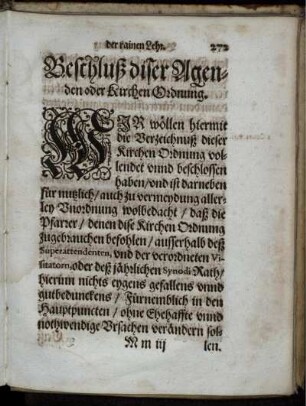 der rainen Lehr. 272
Beschluß diser Agen-
den oder Kirchen Ordnung.
WIR wöllen hiermit
die Verzeichnuß dieser
Kirchen Ordnung vol-
lendet vnnd beschlossen
haben/vnd ist darneben
für nutzlich/auch zu vermeydung aller-
ley Vnordnung wolbedacht/daß die
Pfarrer/denen dise Kirchen Ordnung
zugebrauchen befohlen/ausserhalb deß
Superattendenten, vnd der verordneten Vi-
sitatorn, oder deß jährlichen Synodi Rath/
hierinn nichts eygens gefallens vnnd
gutbedunckens/Fürnemblich in den
Hauptpuncten/ohne Ehehaffte vnnd
nothwendige Vrsachen verändern sol-
M m iij len.